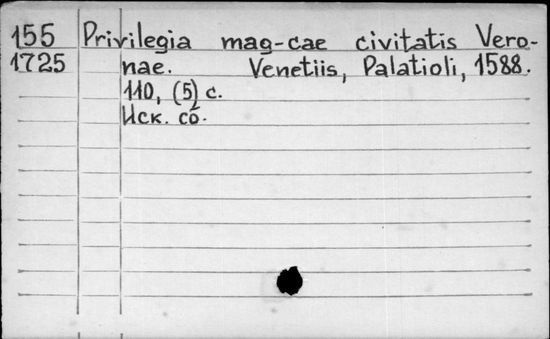 155 Privilegia mag-cae civitatis Vero-
1725 nae. Venetiis, Palatioli, 1588.
110, (5) с.
Иск. сб.